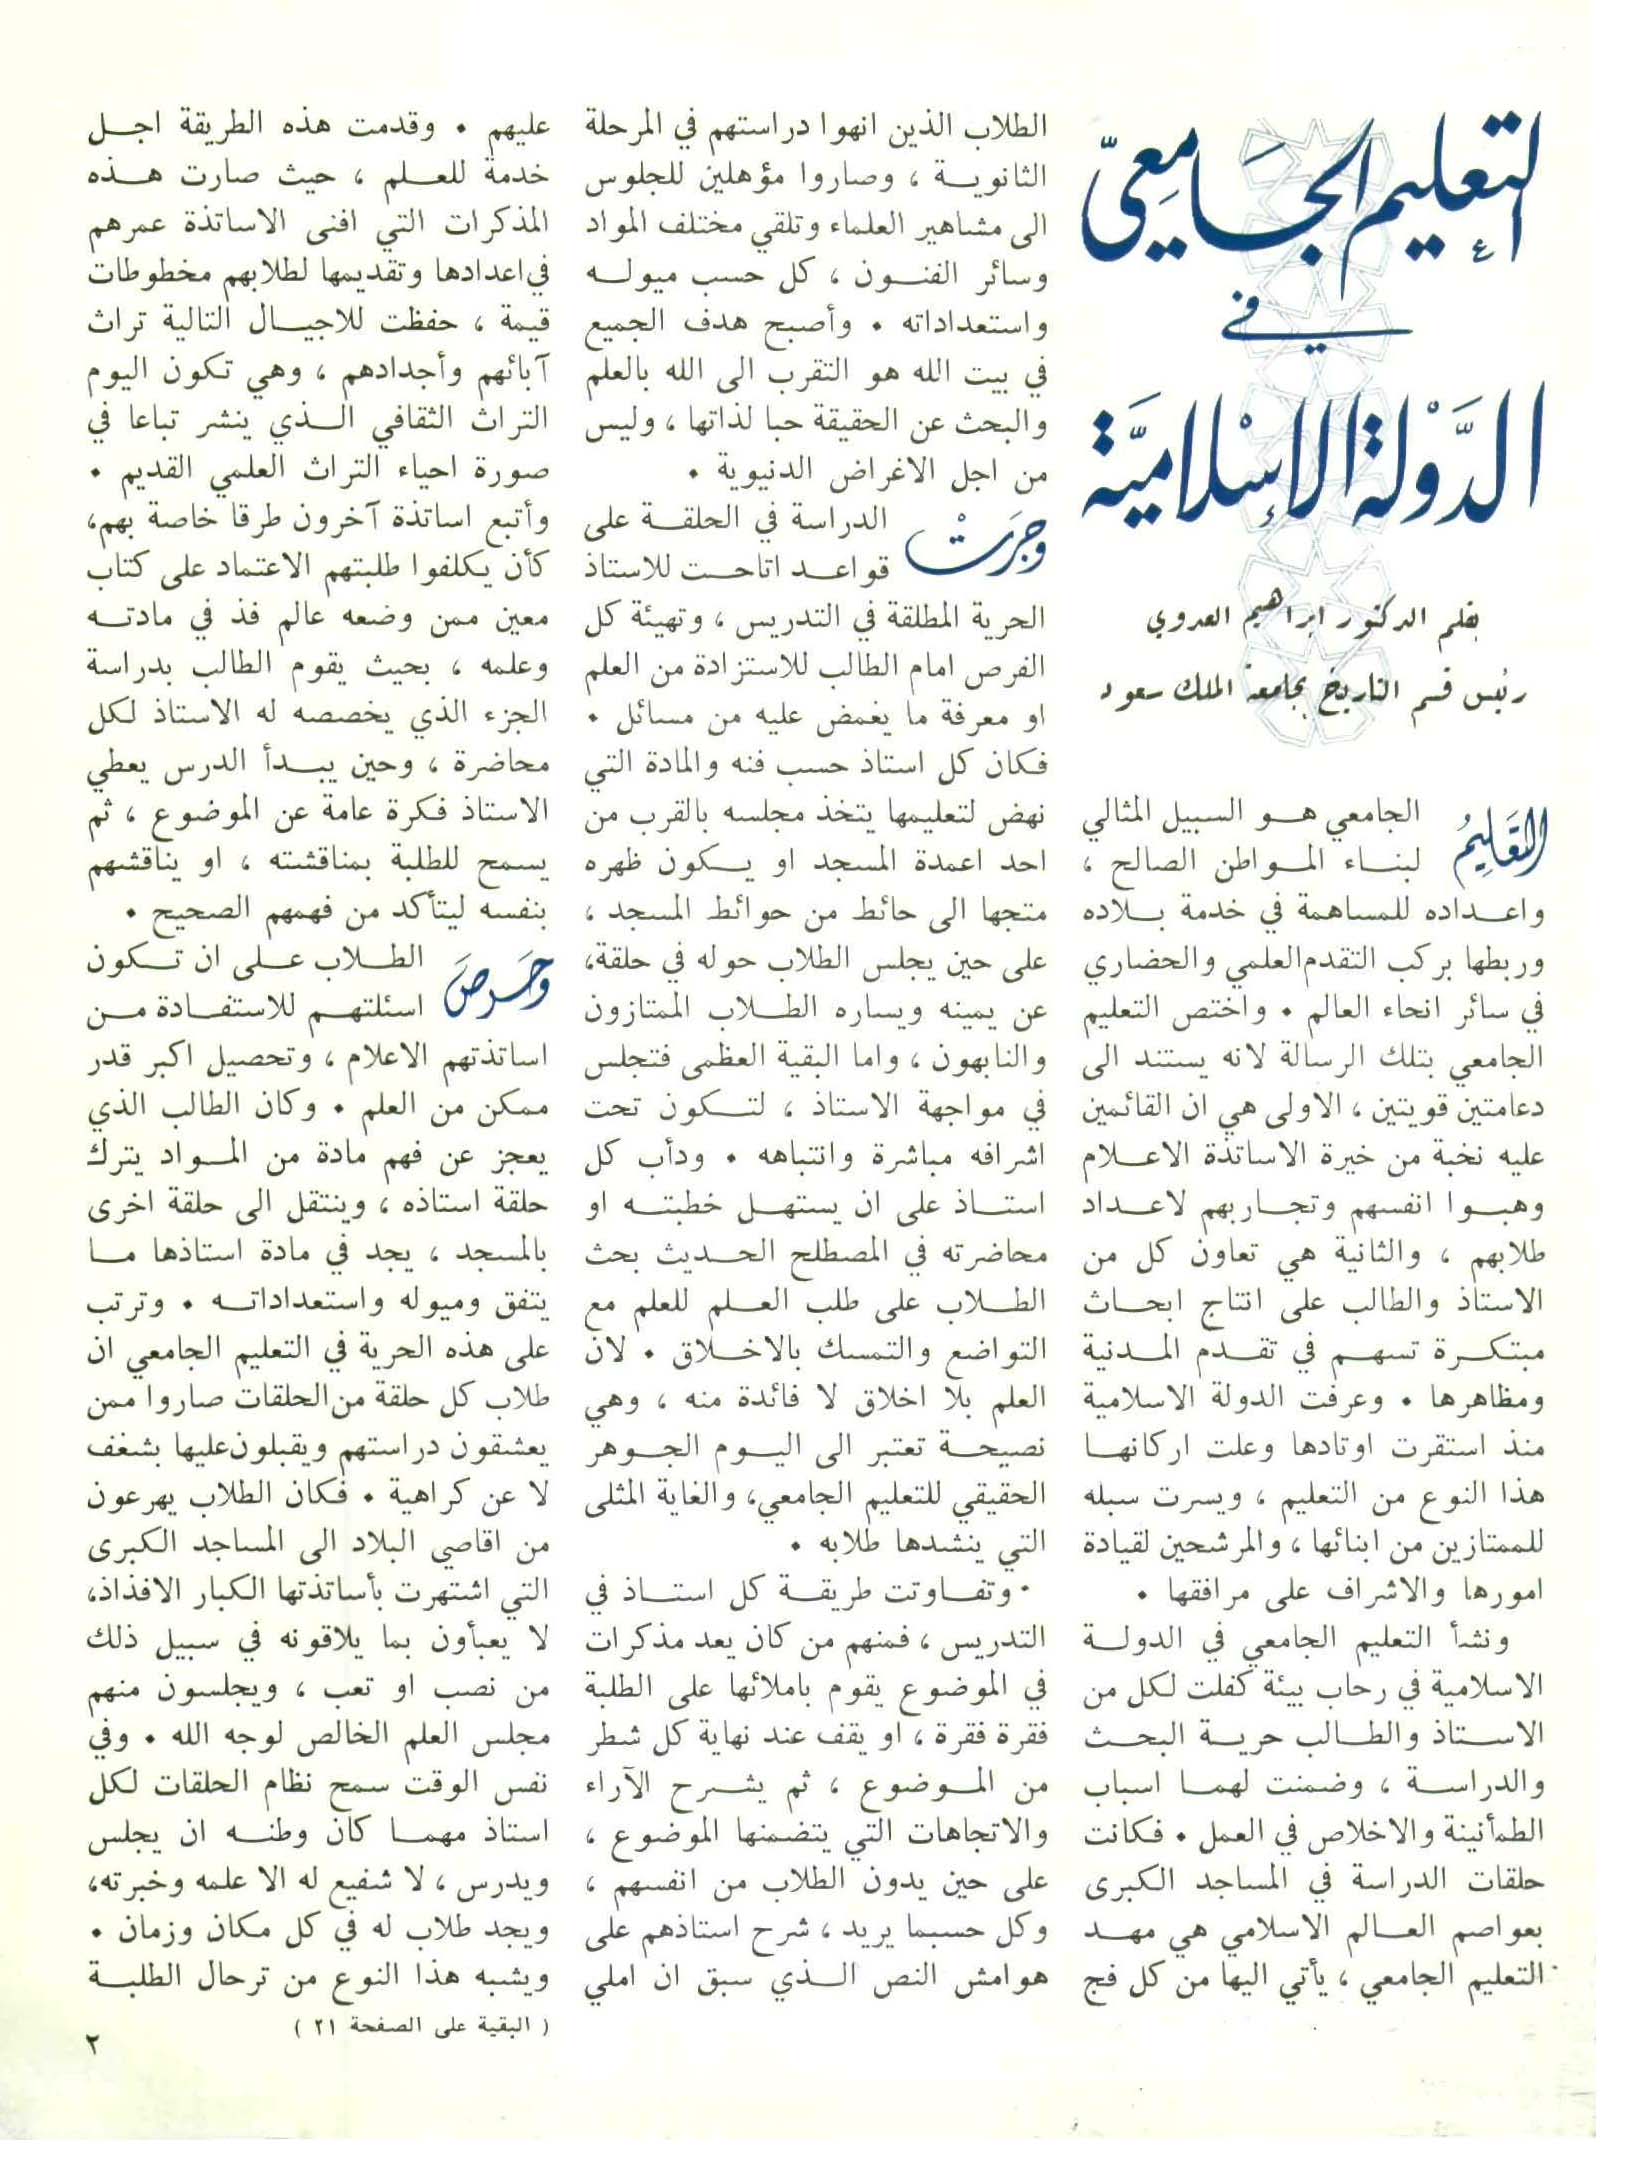 التعليم الجامعي
في
الدولة الإسلامية
بقلم الدكتور ابراهيم العدوي
رئيس قسم التاريخ بجامعة الملك سعود
التعليم الجامعي هو السبيل المثالي
لبناء المواطن الصالح ،
واعداده للمساهمة في خدمة بلاده
وربطها بركب التقدم العلمي والحضاري
في سائر انحاء العالم . واختص التعليم
الجامعي بتلك الرسالة لانه يستند الى
دعامتين قويتين ، الاولى هي ان القائمين
عليه نخبة من خيرة الاساتذة الاعلام
وهبوا انفسهم وتجاربهم لاعداد
طلابهم ، والثانية هي تعاون كل من
الاستاذ والطالب على انتاج ابحاث
مبتكرة تسهم في تقدم المدنية
ومظاهرها . وعرفت الدولة الاسلامية
منذ استقرت اوتادها وعلت اركانها
هذا النوع من التعليم ، ويسرت سبله
للممتازين من ابنائها ، والمرشحين لقيادة
امورها والاشراف على مرافقها .
ونشأ التعليم الجامعي في الدولة
الاسلامية في رحاب بيئة كفلت لكل من
الاستاذ والطالب حرية البحث
والدراسة ، وضمنت لهما اسباب
الطمأنينة والاخلاص في العمل . فكانت
حلقات الدراسة في المساجد الكبرى
بعواصم العالم الاسلامي هي مهد
التعليم الجامعي ، يأتي اليها من كل فج
الطلاب الذين انهوا دراستهم في المرحلة
الثانوية ، وصاروا مؤهلين للجلوس
الى مشاهير العلماء وتلقي مختلف المواد
وسائر الفنون ، كل حسب ميوله
واستعداداته . وأصبح هدف الجميع
في بيت الله هو التقرب الى الله بالعلم
والبحث عن الحقيقة حبا لذاتها ، وليس
من اجل الاغراض الدنيوية .
وجرت الدراسة في الحلقة على
قواعد اتاحت للاستاذ
الحرية المطلقة في التدريس ، وتهيئة كل
الفرص امام الطالب للاستزادة من العلم
او معرفة ما يغمض عليه من مسائل .
فكان كل استاذ حسب فنه والمادة التي
نهض لتعليمها يتخذ مجلسه بالقرب من
احد اعمدة المسجد او يكون ظهره
متجها الى حائط من حوائط المسجد ،
على حين يجلس الطلاب حوله في حلقة،
عن يمينه ويساره الطلاب الممتازون
والنابهون ، واما البقية العظمى فتجلس
في مواجهة الاستاذ ، لتكون تحت
اشرافه مباشرة وانتباهه . ودأب كل
استاذ على ان يستهل خطبته او
محاضرته في المصطلح الحديث بحث
الطلاب على طلب العلم للعلم مع
التواضع والتمسك بالاخلاق . لان
العلم بلا اخلاق لا فائدة منه ، وهي
نصيحة تعتبر الى اليوم الجوهر
الحقيقي للتعليم الجامعي، والغاية المثلى
التي ينشدها طلابه .
وتفاوتت طريقة كل استاذ في
التدريس ، فمنهم من كان يعد مذكرات
في الموضوع يقوم باملائها على الطلبة
فقرة فقرة ، او يقف عند نهاية كل شطر
من الموضوع ، ثم يشرح الآراء
والاتجاهات التي يتضمنها الموضوع ،
على حين يدون الطلاب من انفسهم ،
وكل حسبما يريد ، شرح استاذهم على
هوامش النص الذي سبق ان املي
عليهم . وقدمت هذه الطريقة اجل
خدمة للعلم ، حيث صارت هذه
المذكرات التي افنى الاساتذة عمرهم
في اعدادها وتقديمها لطلابهم مخطوطات
قيمة ، حفظت للاجيال التالية تراث
آبائهم وأجدادهم ، وهي تكون اليوم
التراث الثقافي الذي ينشر تباعا في
صورة احياء التراث العلمي القديم .
وأتبع اساتذة آخرون طرقا خاصة بهم،
كأن يكلفوا طلبتهم الاعتماد على كتاب
معين ممن وضعه عالم فذ في مادته
وعلمه ، بحيث يقوم الطالب بدراسة
الجزء الذي يخصصه له الاستاذ لكل
محاضرة ، وحين يبدأ الدرس يعطي
الاستاذ فكرة عامة عن الموضوع ، ثم
يسمح للطلبة بمناقشته ، او يناقشهم
بنفسه ليتأكد من فهمهم الصحيح .
وحرص الطلاب على ان تكون
اسئلتهم للاستفادة من
اساتذتهم الاعلام ، وتحصيل اكبر قدر
ممكن من العلم . وكان الطالب الذي
يعجز عن فهم مادة من المواد يترك
حلقة استاذه ، وينتقل الى حلقة اخرى
بالمسجد ، يجد في مادة استاذها ما
يتفق وميوله واستعداداته . وترتب
على هذه الحرية في التعليم الجامعي ان
طلاب كل حلقة من الحلقات صاروا ممن
يعشقون دراستهم ويقبلون عليها بشغف
لا عن كراهية . فكان الطلاب يهرعون
من اقاصي البلاد الى المساجد الكبرى
التي اشتهرت بأساتذتها الكبار الافذاذ،
لا يعبأون بما يلاقونه في سبيل ذلك
من نصب او تعب ، ويجلسون منهم
مجلس العلم الخالص لوجه الله . وفي
نفس الوقت سمح نظام الحلقات لكل
استاذ مهما كان وطنه ان يجلس
ويدرس ، لا شفيع له الا علمه وخبرته،
ويجد طلاب له في كل مكان وزمان .
ويشبه هذا النوع من ترحال الطلبة
( البقية على الصفحة ٢١ )
٢